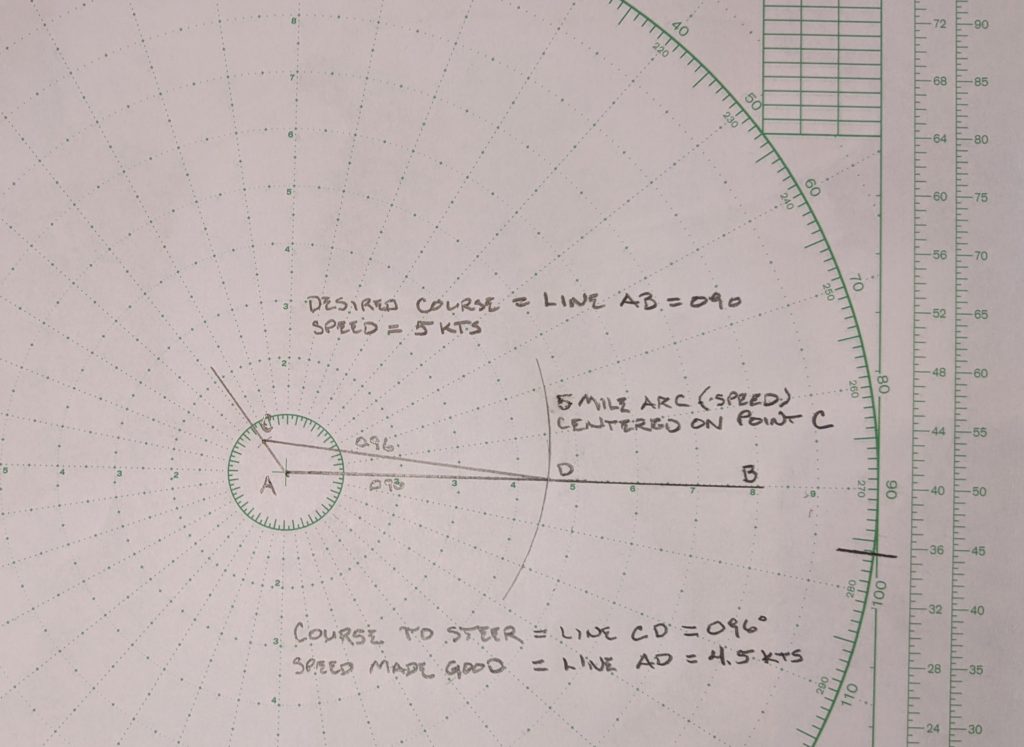 8
7
6
5
4
3
2
40
220
50
230
60
240
70
250
80
260
90
270
280
100
290
110
72
68
64
60
56
52
48
44
40
36
32
28
24
90
85
80
75
70
65
60
55
50
45
40
35
30
DESIRED COURSE = LINE AB = 090
SPEED = 5 KTS
5 MILE ARC (SPEED)
CENTERED ON POINT C
C
096
A
090
D
B
5 4 3 2
3 5 6 7 9
2
3
4
COURSE TO STEER = LINE CD = 096°
SPEED MADE GOOD = LINE AD = 4.5 KTS